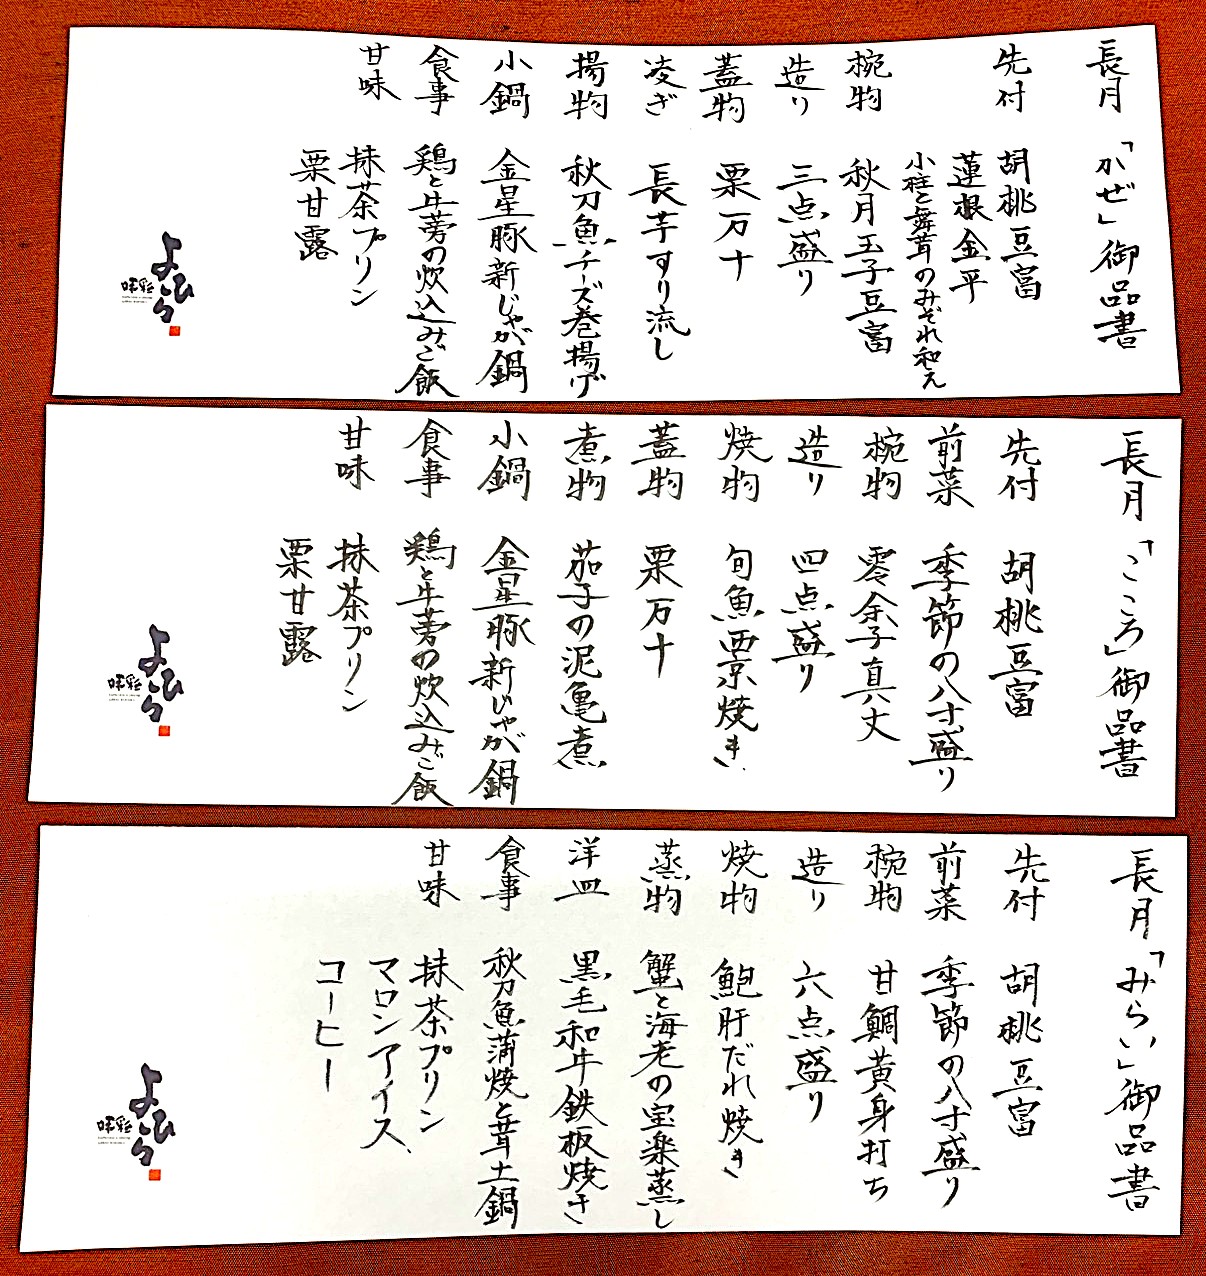 長月「かぜ」御品書
先付 胡桃豆富
蓮根金平
小柱と舞茸のみぞれ和え
椀物 秋月玉子豆富
造り 三点盛り
蓋物 栗万十
凌ぎ 長芋すり流し
揚物 秋刀魚チーズ巻揚げ
小鍋 金星豚新じゃが鍋
食事 鶏と牛蒡の炊込みご飯
甘味 抹茶プリン
栗甘露
味彩
よひら
長月「こころ」御品書
先付 胡桃豆富
前菜 季節の八寸盛り
椀物 零余子真丈
造り 四点盛り
焼物 旬魚西京焼き
蓋物 栗万十
煮物 茄子の泥亀煮
小鍋 金星豚新じゃが鍋
食事 鶏と牛蒡の炊込みご飯
甘味 抹茶プリン
栗甘露
味彩
よひら
長月「みらい」御品書
先付 胡桃豆富
前菜 季節の八寸盛り
椀物 甘鯛黄身打ち
造り 六点盛り
焼物 鮑肝だれ焼き
蒸物 蟹と海老の宝楽蒸し
洋皿 黒毛和牛鉄板焼き
食事 秋刀魚蒲焼と茸土鍋
甘味 抹茶プリン
マロンアイス
コーヒー
味彩
よひら